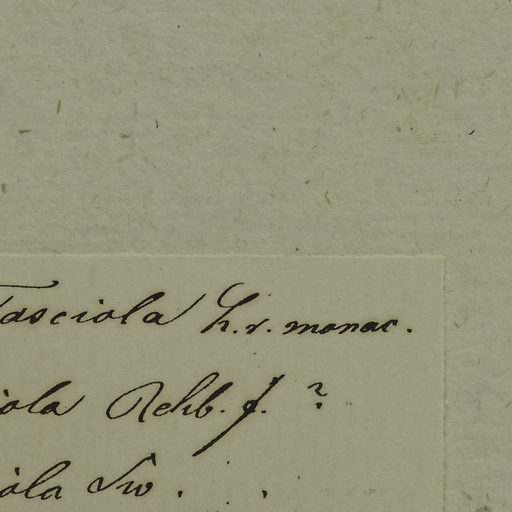 Fasciola h. r. monac.
iola Rchb. f. ?
iola Sw.